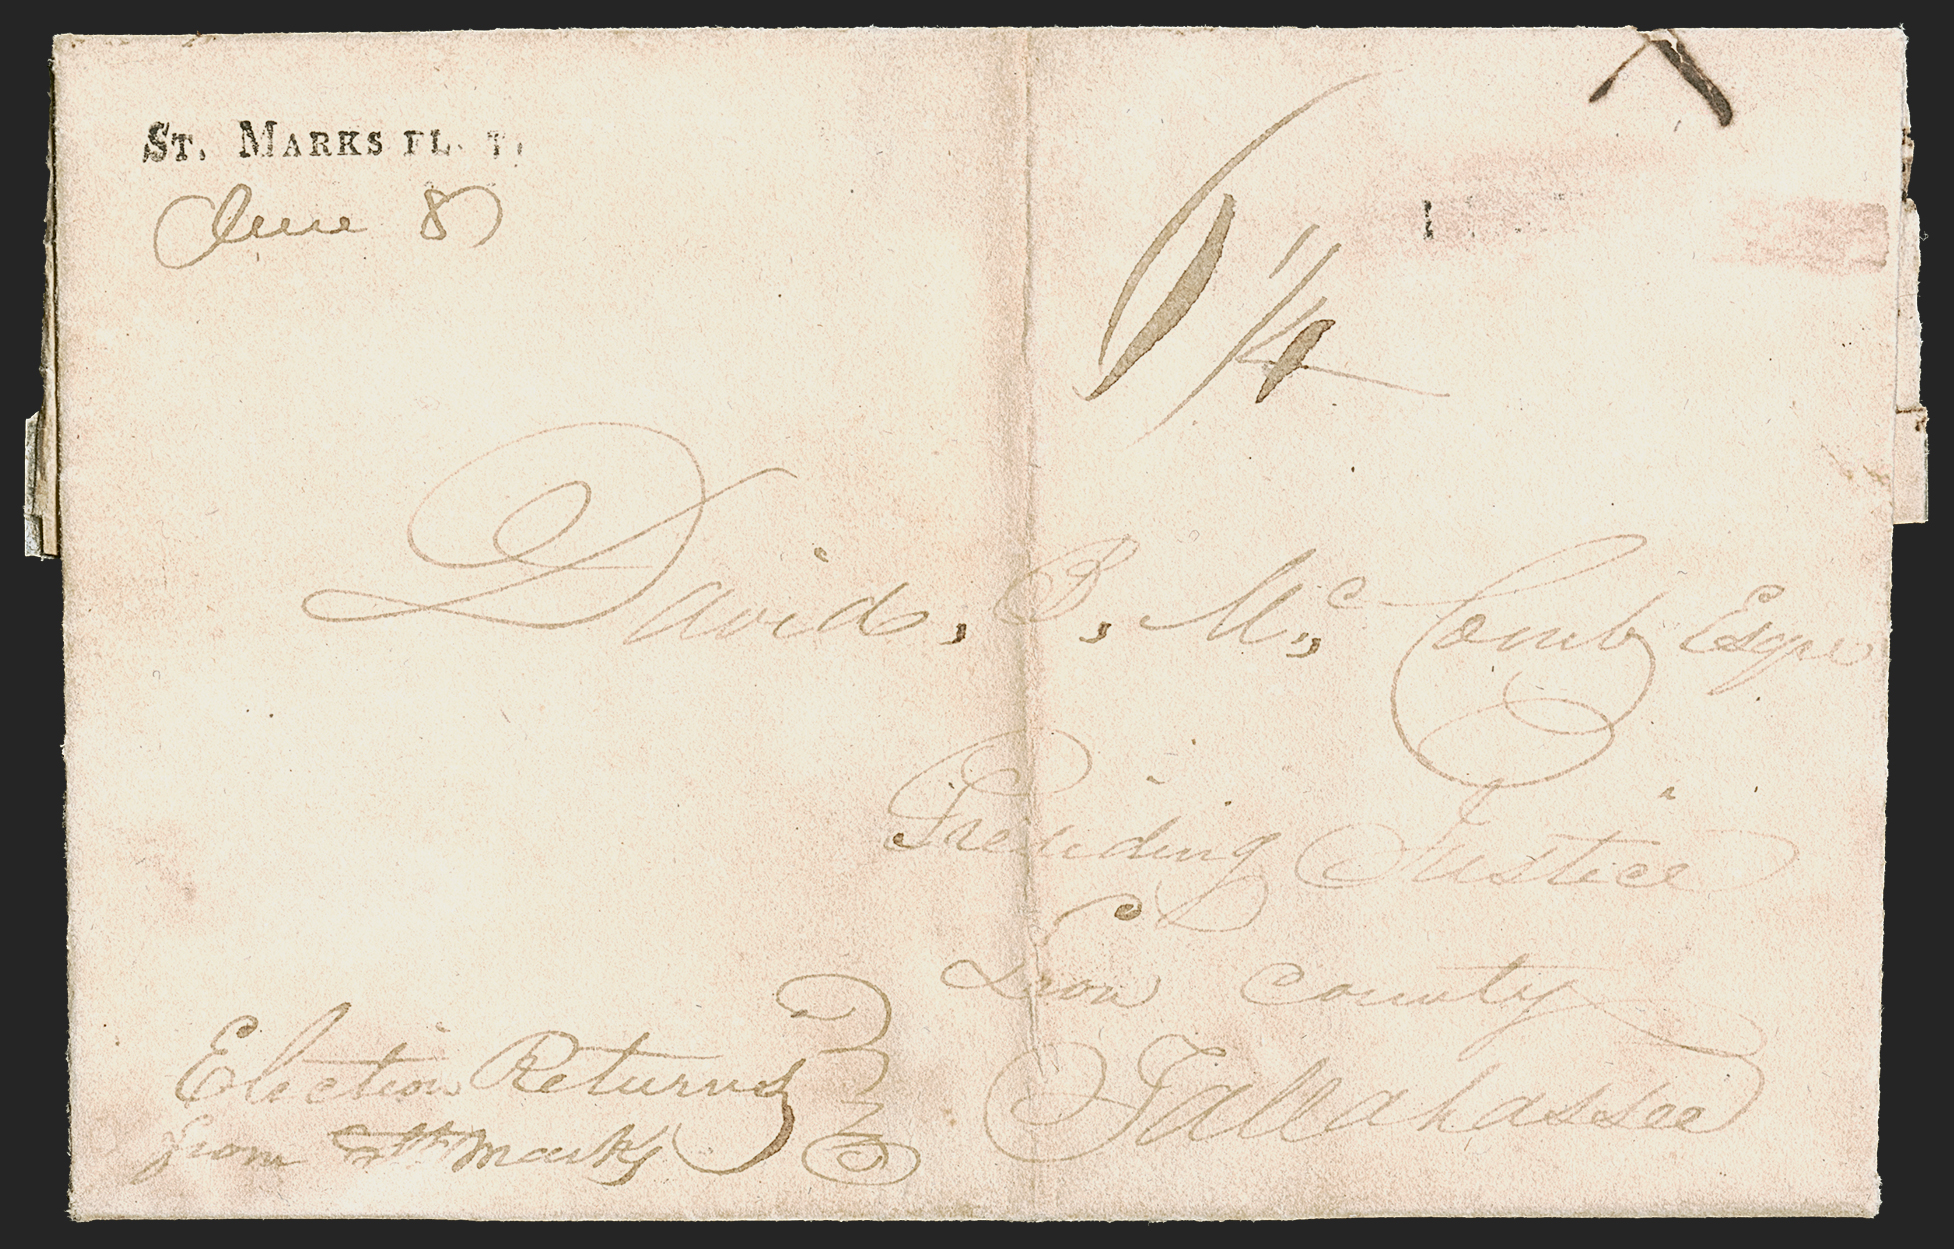 ST. MARKS FL. T.
June 8
6 1/4
David, B, Mc, Comb Esqre
Presiding Justice
Leon County
Tallahassee
Election Returns
from St Marks